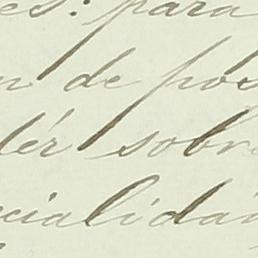 es: para
n de pos
dér sobre
cialidán